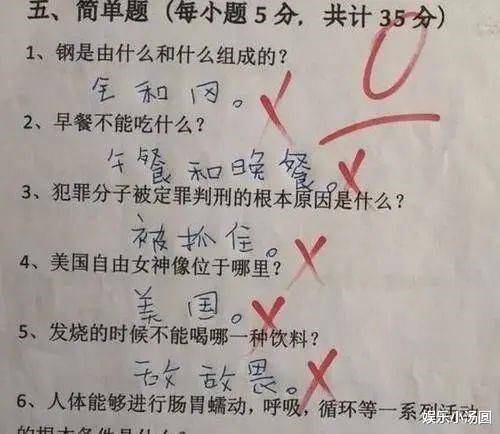 五、简单题（每小题 5 分，共计 35 分）
0
1、钢是由什么和什么组成的？
全和冈。
2、早餐不能吃什么？
午餐和晚餐。
3、犯罪分子被定罪判刑的根本原因是什么？
被抓住。
4、美国自由女神像位于哪里？
美国。
5、发烧的时候不能喝哪一种饮料？
敌敌畏。
6、人体能够进行肠胃蠕动，呼吸，循环等一系列活动
的根本条件是什么？
娱乐小汤圆